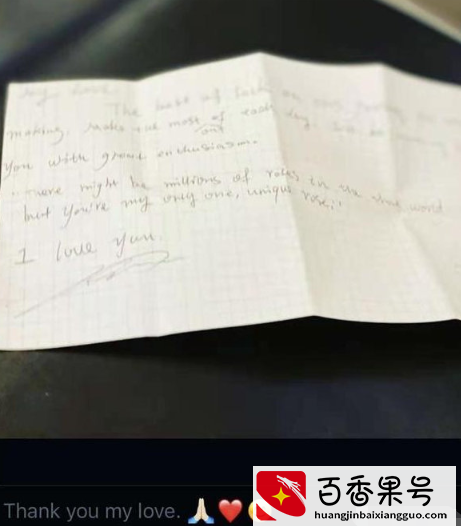 My love
The best of luck on
making, make out most of each day.
you with great enthusiasm.
"There might be millions of roses in the world
but you're my only one, unique rose"
I love you.
Thank you my love. 🙏🏻❤️
百香果号
huangjinbaixiangguo.com